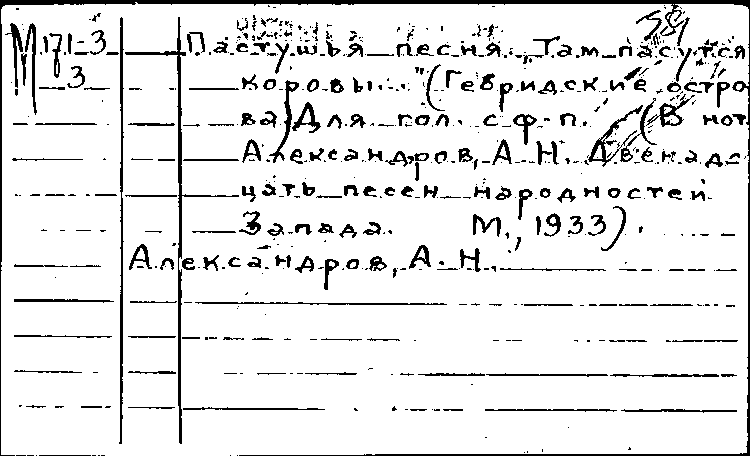 М 171-3 Пастушья песня. „Там пасутся
3 коровы..." (Гебридские остро
ва) Для гол. с ф-п. (В нот.
Александров, А. Н. Двенад-
цать песен народностей
Запада. М., 1933).
Александров, А. Н.